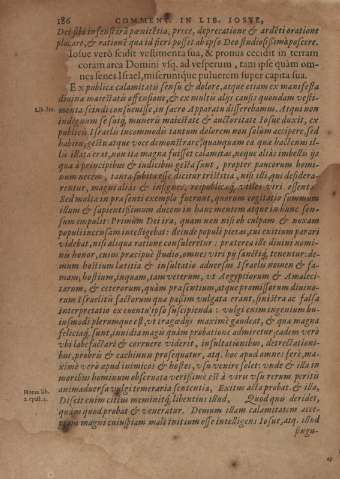 186 COMMENT. IN LIB. IOSVE,
Dei sibi infensi ira pœnitētia, prece, deprecatione & ardēti oratione
placare, & rationē qua id fieri posset ab ipso Deo studiosissimè poscere.
Iosue verò scidit vestimenta sua, & pronus cecidit in terram
coram arca Domini vsq. ad vesperum, tam ipse quàm om-
nes senes Israel, miseruntque puluerem super capita sua.
Ex publica calamitatis sensu & dolore, atque etiam ex manifesta
diuinæ maiestatis offensione, & ex multis alijs causis quondam vesti-
menta scindi consueuisse, in sacro Apparatu disserebamus. Atque non
indignum se suoq. munere maiestate & auctoritate Iosue duxit, ex
publicis Israelis incommodis tantum dolorem non solùm accipere, sed
habitu, gestu atque voce demonstrare; quamquam ea qua hactenus il-
lis illata erat, non ita magna fuisset calamitas, neque alias imbellis
qua à principibus & iudicibus gesta sunt, propter paucorum homi-
num necem, tanta subita esse dicitur tristitia, nisi illi, qui desidera-
rentur, magni aliâs & insignes, reipublicæq. vtiles viri essent.
Sed multa in præsenti exemplo fuerunt, quorum cogitatio summum
illum & sapientissimum ducem in hunc mentem atque in hunc sen-
sum impulit: Primùm Dei ira, quam non nisi ob culpam & noxam
populi incensam intelligebat: deinde populi pietas, cui exitium parari
videbat, nisi aliqua ratione consuleretur: præterea ille diuini nomi-
nis honor, cuius præcipuè studio, omnes viri pij sanctiq. tenentur: de-
mum hostium lætitia & insultatio aduersus Israelis nomen & fa-
mam, hostium, inquam, tam veterum, vt Aegyptiorum & Amaleci-
tarum, & ceterorum, quàm præsentium, atque promissorum diuino-
rum Israelitis factorum qua passim vulgata erant, sinistra ac falsa
interpretatio ex euentu ipso suscipienda: vulgi enim ingenium hu-
iusmodi plerumque est, vt tragœdijs maximè gaudeat, & qua magna
felicia sunt, inuidia magis quàm probatione admiretur, eadem verò
vbi labefactari & corruere viderit, insultationibus, detrectationi-
bus, probris & cachinnis prosequatur, atq. hoc apud omnes ferè, ma-
ximè verò apud inimicos & hostes, vsu venire solet: vnde & illa in
moribus hominum obseruata verissimè est à viro vsu rerum perito
animaduersa vulgi temeraria sententia, Exitus acta probat. & illa,
Discit enim citius meminitq. libentius illud, Quod quis deridet,
quàm quod probat & veneratur. Demum illam calamitatem acce-
ptam magni cuiuspiam mali initium esse intelligens Iosue, atq. illud